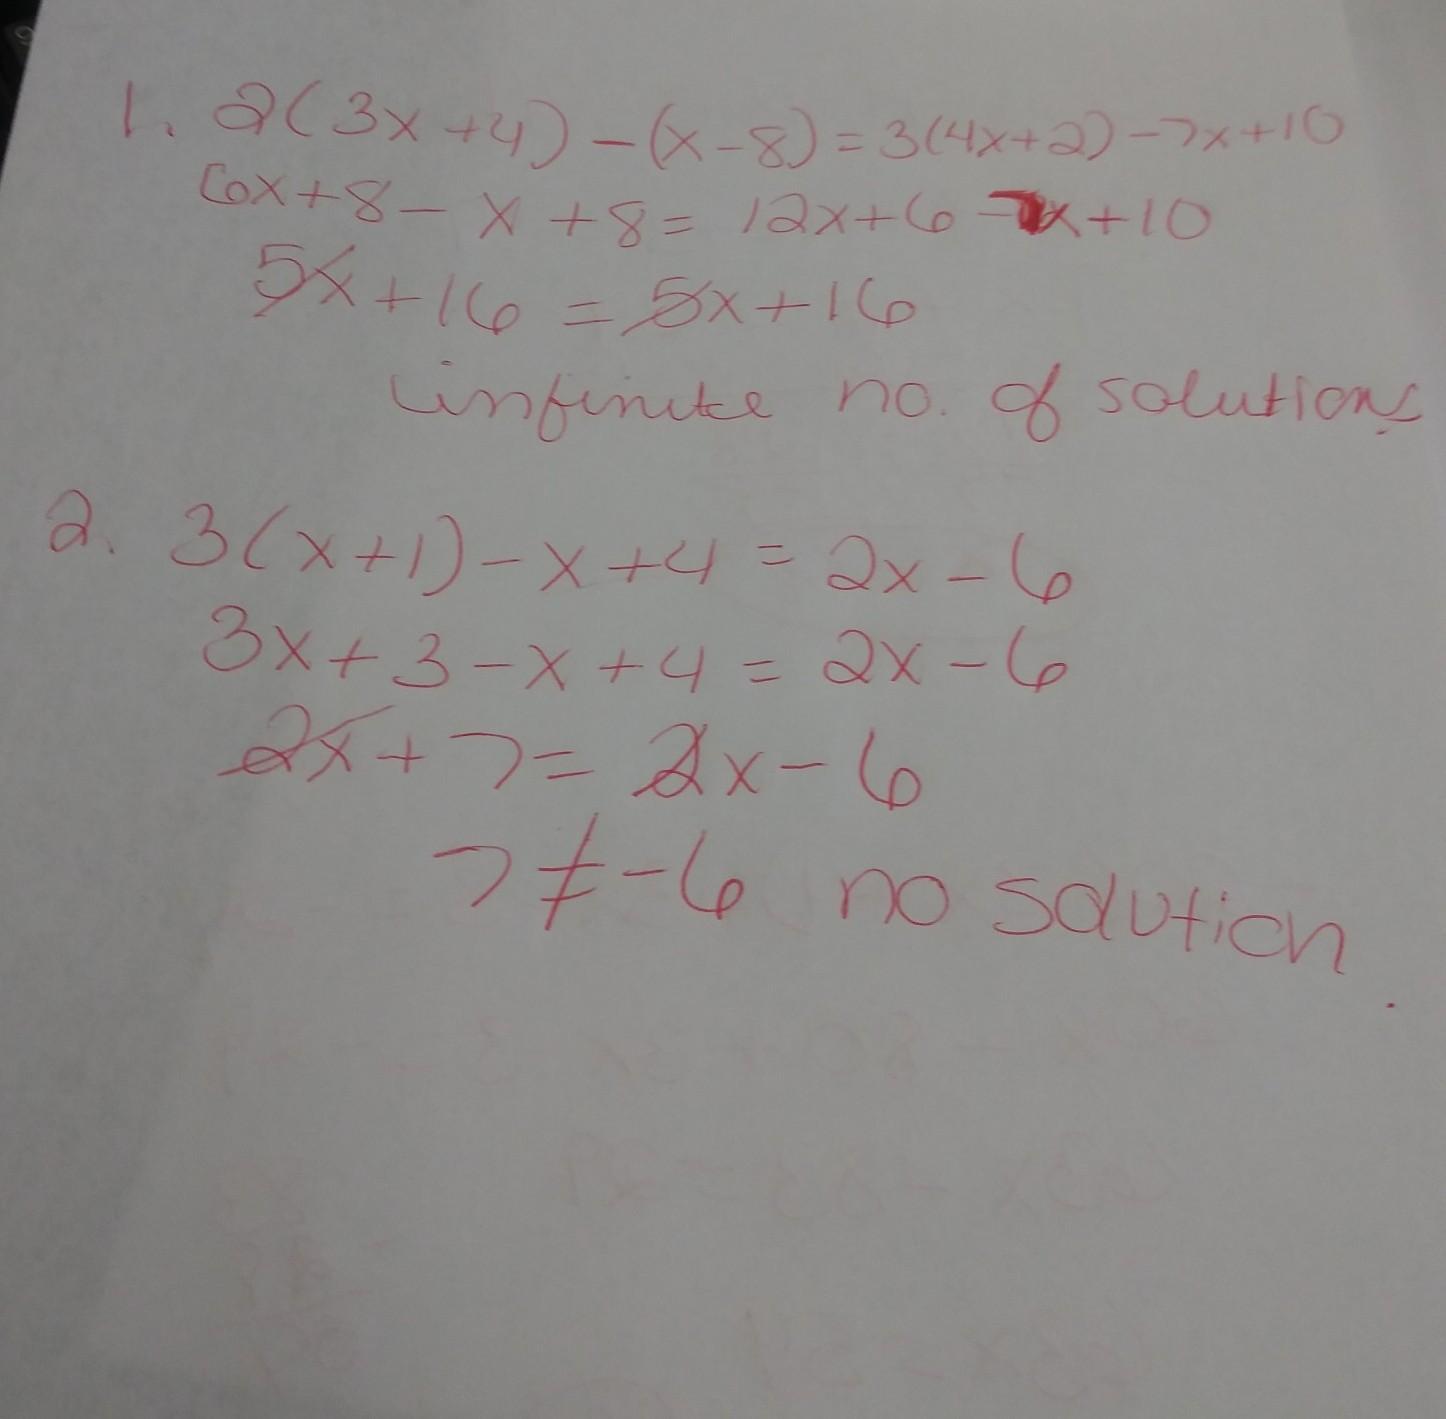 1. 2(3x+4)-(x-8)=3(4x+2)-7x+10
6x+8-x+8=12x+6-7x+10
5x+16=5x+16
infinite no. of solutions
2. 3(x+1)-x+4=2x-6
3x+3-x+4=2x-6
2x+7=2x-6
7≠-6 no solution.